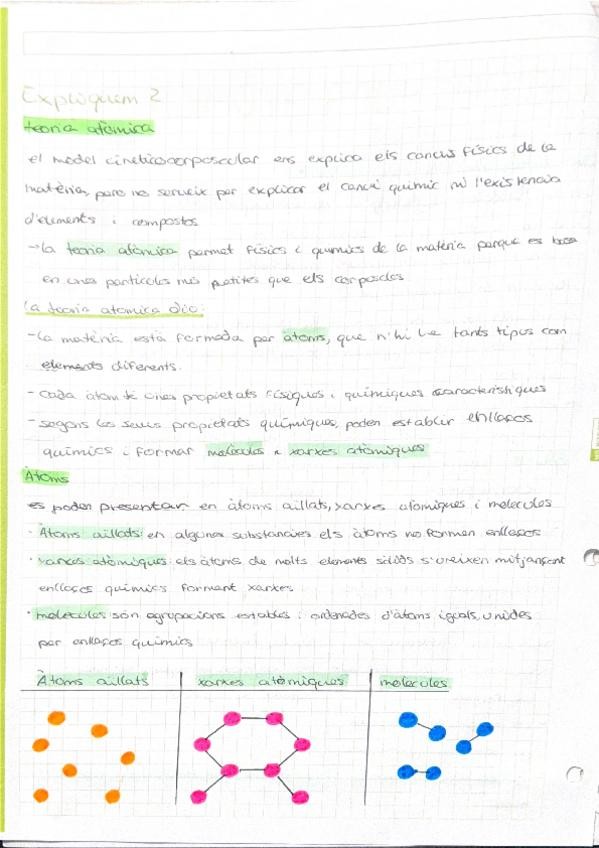 Expliquem 2
teoria atòmica
el model cineticocorposcular ens explica els canvis físics de la
matèria, pero no serveix per explicar el canvi químic ni l'existencia
d'elements i compostos
→ la teoria atòmica permet físics i químics de la matèria perquè es basa
en unes partícules més petites que els corposcles
la teoria atomica diu:
- la matèria està formada per àtoms, que n'hi ha tants tipus com
elements diferents.
- Cada àtom té unes propietats físiques i químiques característiques
- segons les seves propietats químiques, poden establir enllaços
químics i formar molècules o xarxes atòmiques
Àtoms
es poden presentar en àtoms aïllats, xarxes atòmiques i molecules
· Àtoms aïllats: en algunes substancies els àtoms no formen enllaços
· xarxes atòmiques: els àtoms de molts elements sòlids s'uneixen mitjançant
enllaços químics formant xarxes
· molècules són agrupacions estables i ordenades d'àtoms iguals, unides
per enllaços químics
Àtoms aïllats xarxes atòmiques molecules